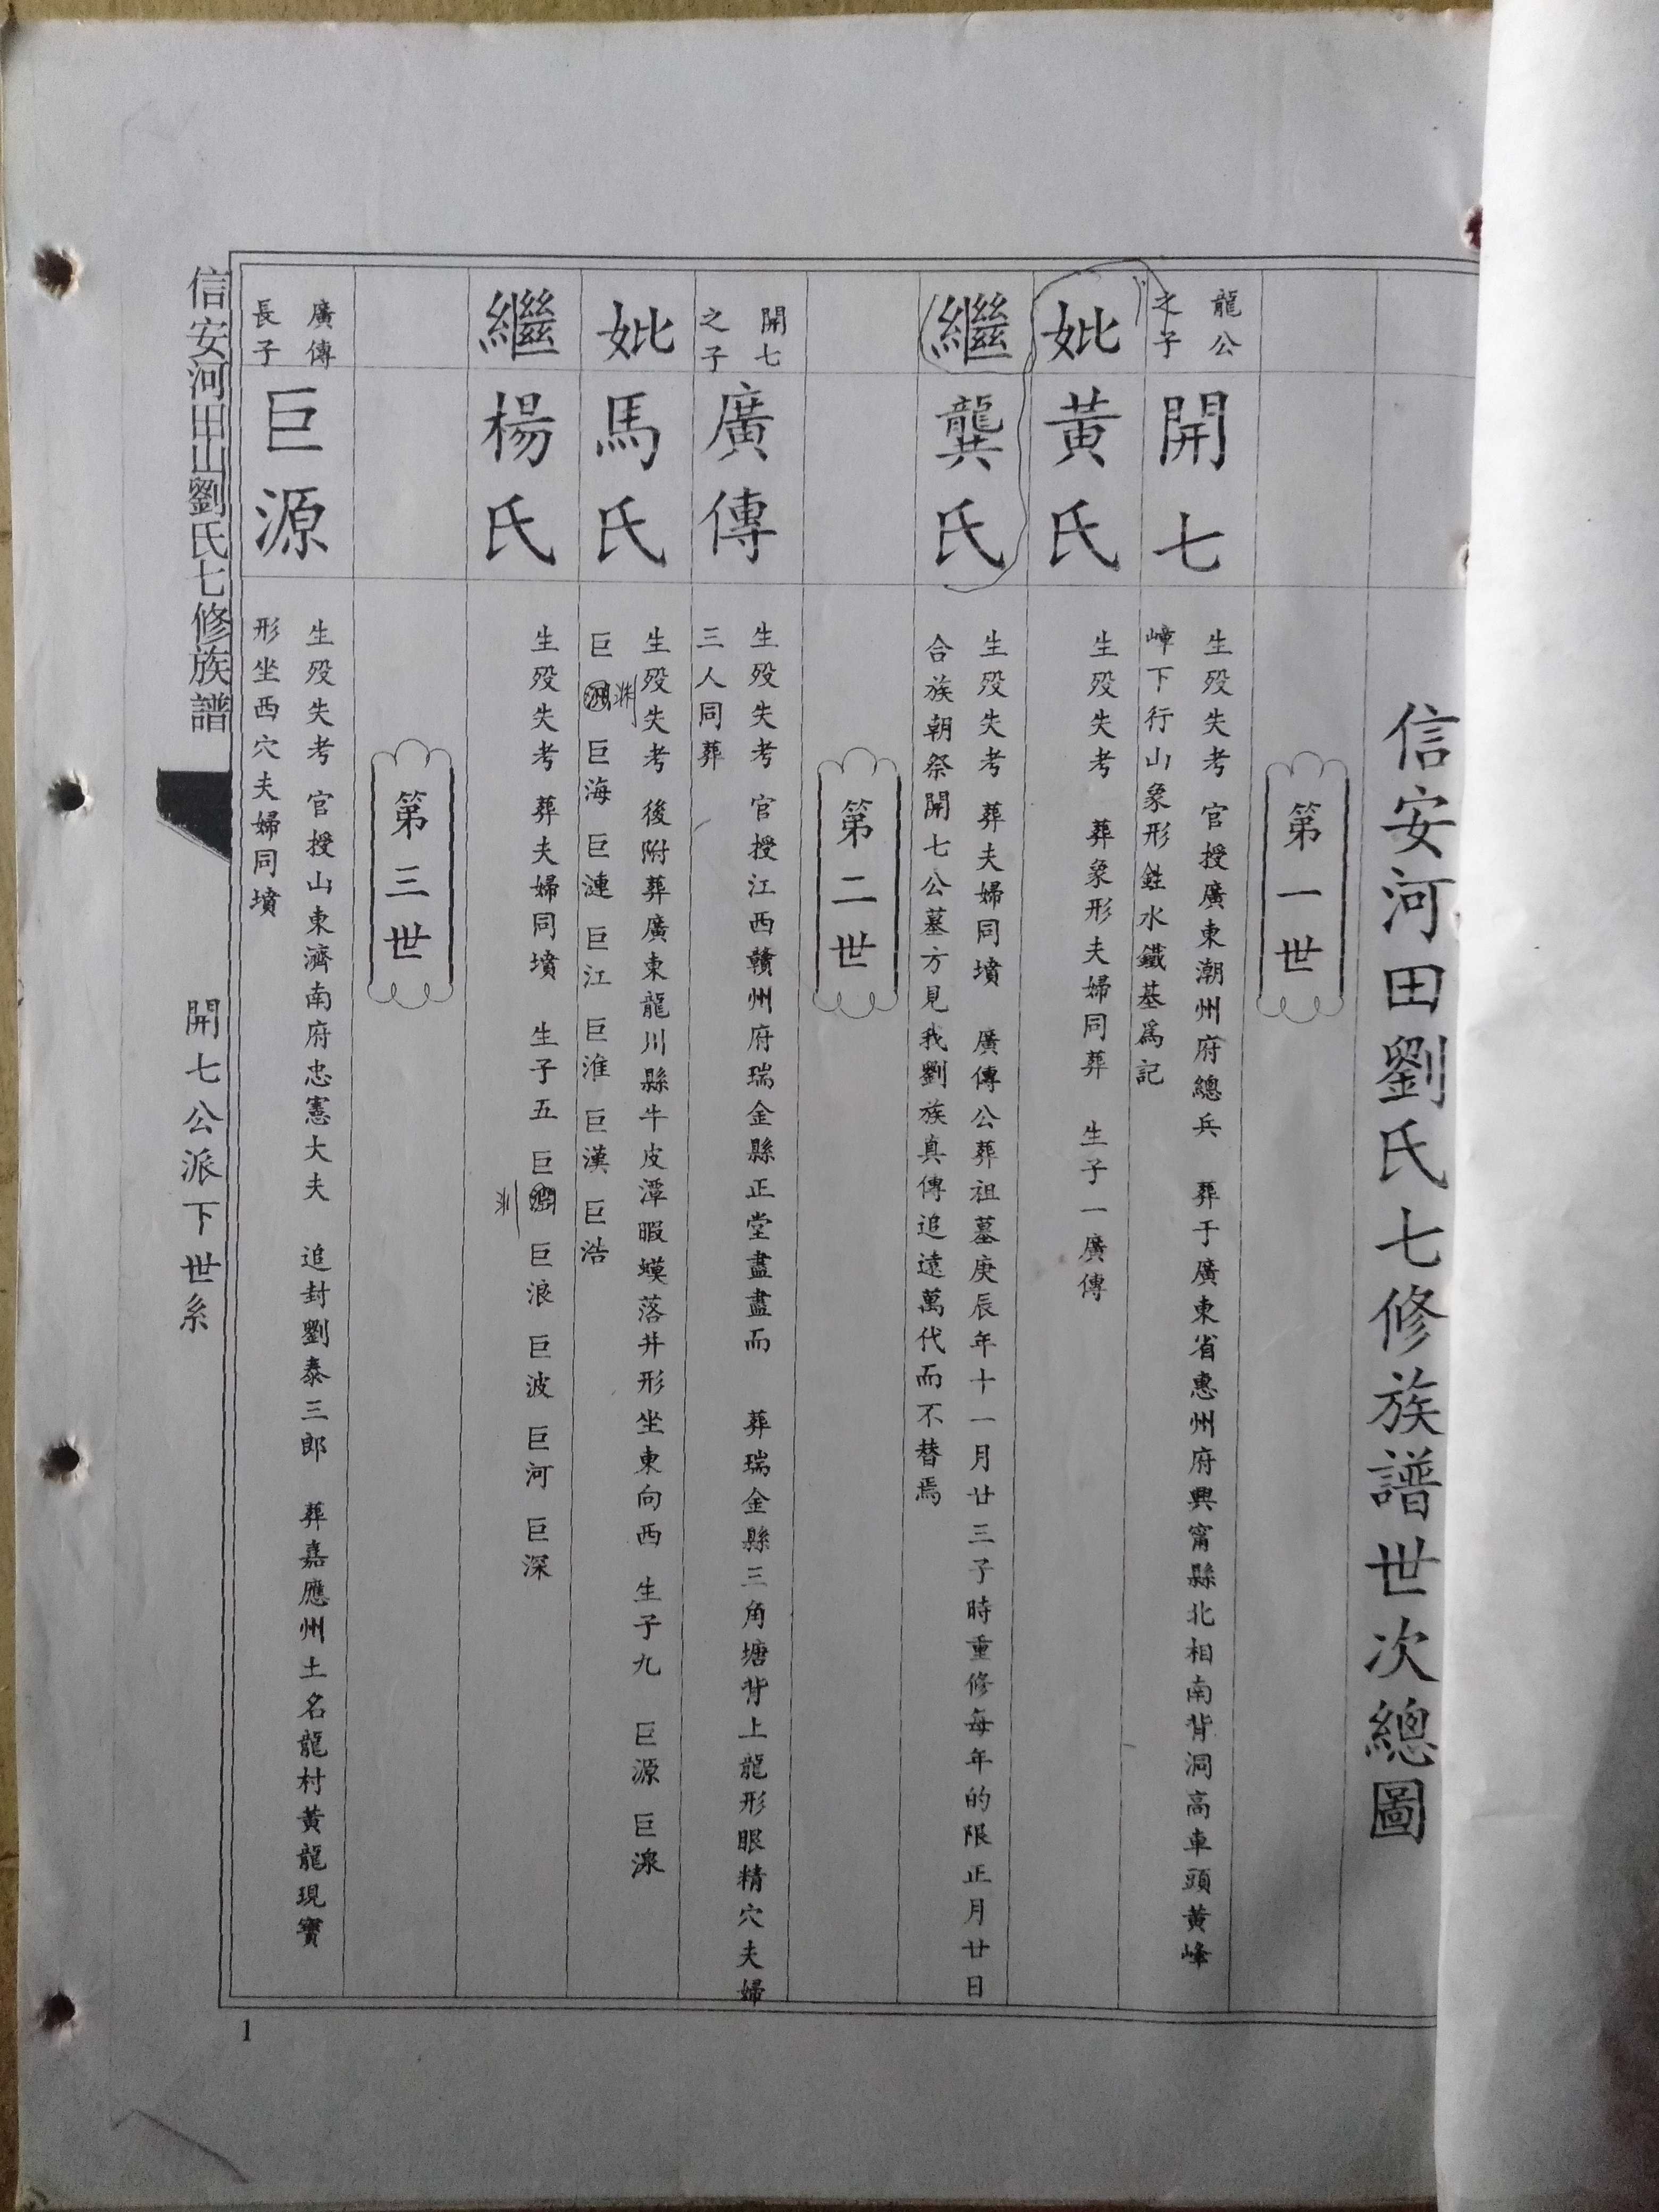 信安河田劉氏七修族譜世次總圖
第一世
龍公
之子
開七
生殁失考 官授廣東潮州府總兵 葬于廣東省惠州府興甯縣北相南背洞高車頭黃峰
嶂下行山象形鉎水鐵基爲記
妣黃氏
生殁失考 葬象形夫婦同葬 生子一廣傳
繼龔氏
生殁失考 葬夫婦同墳 廣傳公葬祖墓庚辰年十一月廿三子時重修每年的限正月廿日
合族朝祭開七公墓方見我劉族真傳追遠萬代而不替焉
第二世
開七
之子
廣傳
生殁失考 官授江西贛州府瑞金縣正堂盡盡而 葬瑞金縣三角塘背上龍形眼精穴夫婦
三人同葬
妣馬氏
生殁失考 後附葬廣東龍川縣牛皮潭暇蟆落井形坐東向西 生子九 巨源 巨湶
巨 巨海 巨漣 巨江 巨淮 巨漢 巨浩
繼楊氏
生殁失考 葬夫婦同墳 生子五 巨 巨浪 巨波 巨河 巨深
第三世
廣傳
長子
巨源
生殁失考 官授山東濟南府忠憲大夫 追封劉泰三郎 葬嘉應州土名龍村黃龍現寶
形坐西穴夫婦同墳
信安河田山劉氏七修族譜
開七公派下世系
1